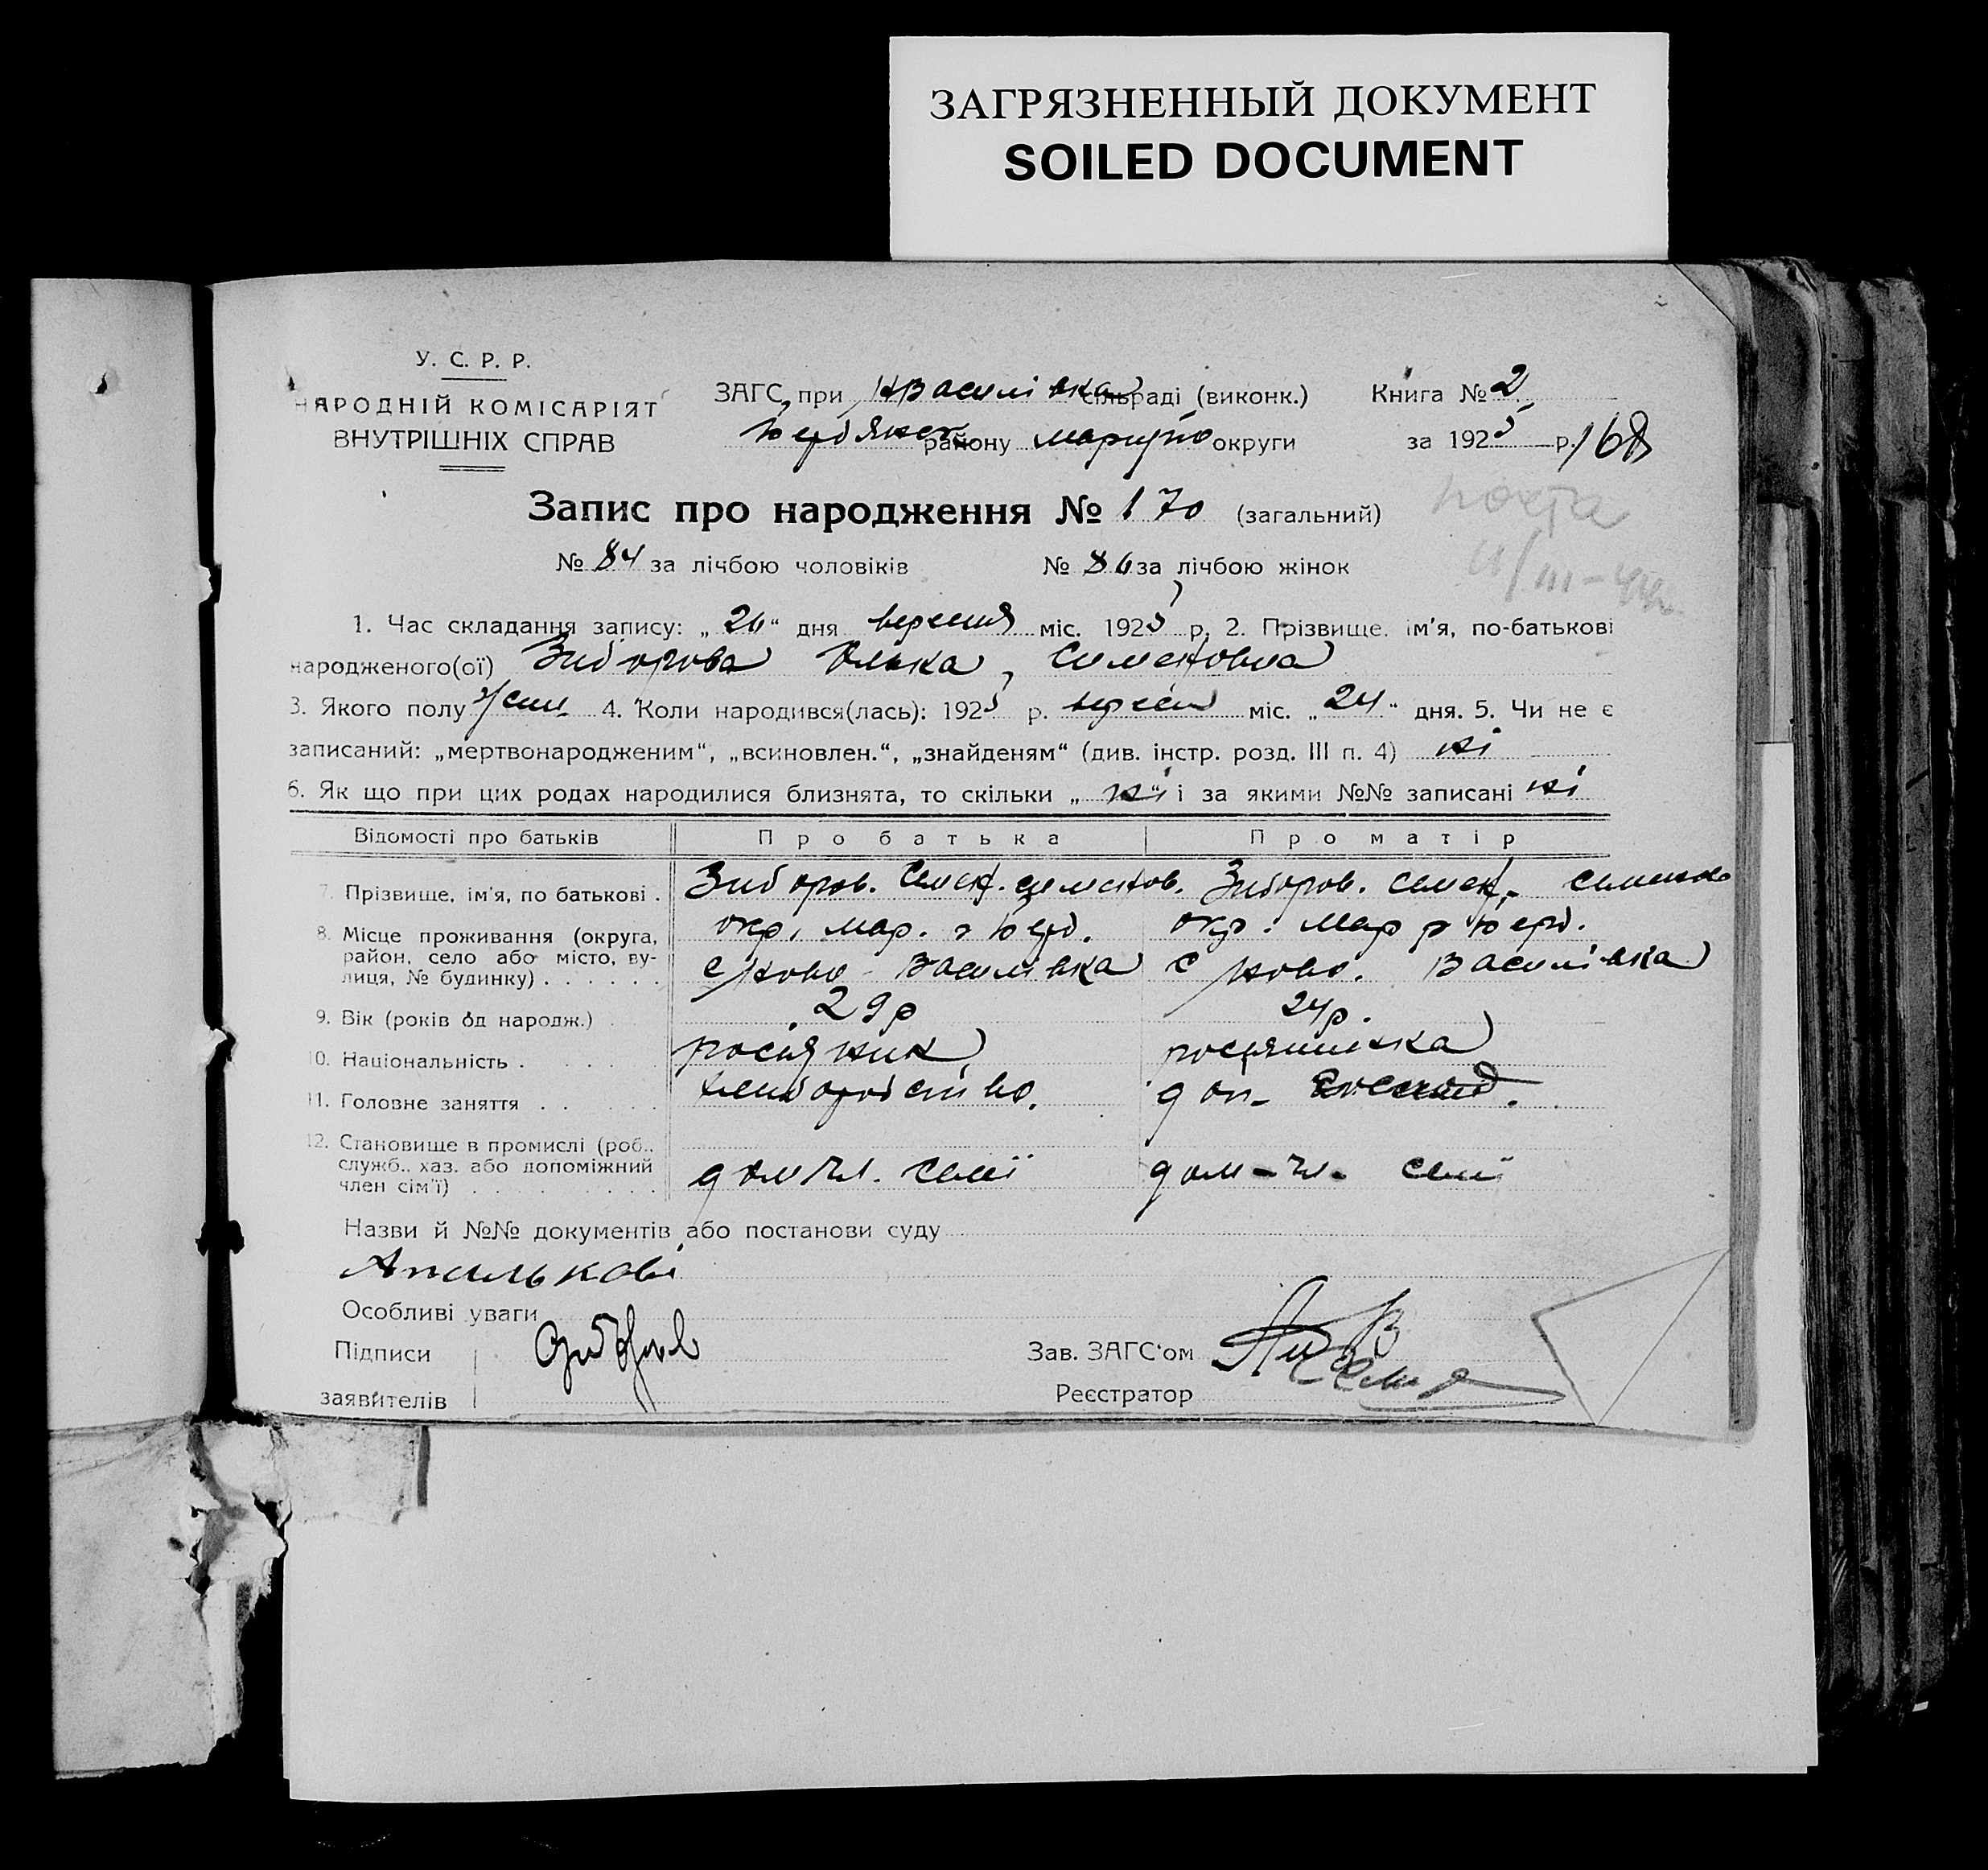 ЗАГРЯЗНЕННЫЙ ДОКУМЕНТ
SOILED DOCUMENT
У. С. Р. Р.
НАРОДНІЙ КОМІСАРІЯТ
ВНУТРІШНІХ СПРАВ
ЗАГС при НВасилівка сільраді (виконк.)
району округи
Книга № 2
за 1925 р. 168
Запис про народження № 170 (загальний)
№ 84 за лічбою чоловіків № 86 за лічбою жінок
1. Час складання запису: „26“ дня вересня міс. 1925 р. 2. Прізвище, ім'я, по-батькові
народженого(ої) Зиборова Олька, Сименовна
3. Якого полу жин 4. Коли народився(лась): 1925 р. вересня міс. „24“ дня. 5. Чи не є
записаний: „мертвонародженим“, „всиновлен.“, „знайденям“ (див. інстр. розд. III п. 4) ні
6. Як що при цих родах народилися близнята, то скільки „ні“ і за якими №№ записані ні
Відомості про батьків Про батька Про матір
7. Прізвище, ім'я, по батькові . Зиборов. Семен. сименов. Зиборов. Семен.
8. Місце проживання (округа, район, село або місто, вулиця, № будинку) . . . . . . окр. мар. р окр. мар р
с Ново-Василівка с Ново. Василівка
9. Вік (років од народж.) . 29 р 24 р.
10. Національність . . . . . росіянин росіянинка
11. Головне заняття . . . . . хліборобство. дом.
12. Становище в промислі (роб., служб., хаз. або допоміжний член сім'ї) . . . . . . . . . дом чл. семї дом-чл. семї
Назви й №№ документів або постанови суду
Особливі уваги
Підписи
заявителів
Зав. ЗАГС'ом
Реєстратор